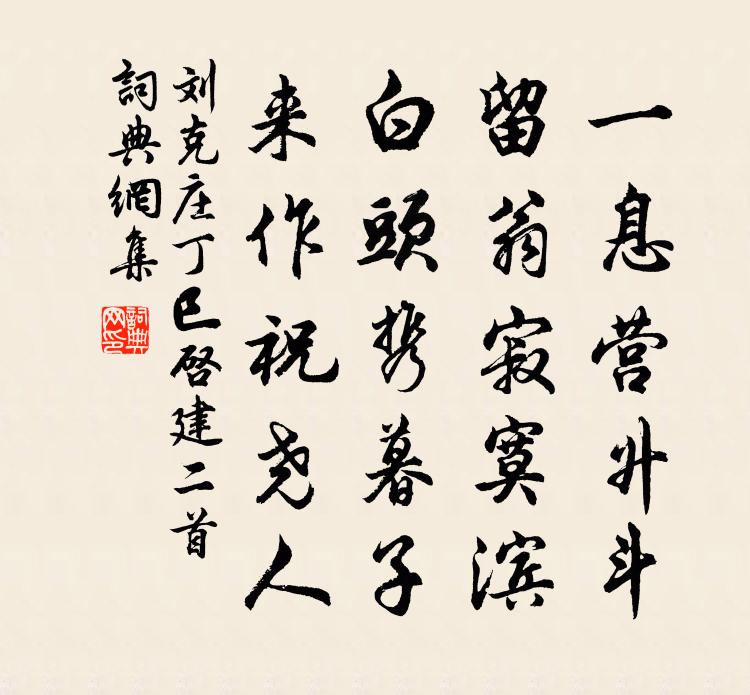 一息营升斗
留翁寂寞滨
白頭携暮子
来作祝尧人
刘克庄丁巳啓建二首
詞典網集
詞典网印